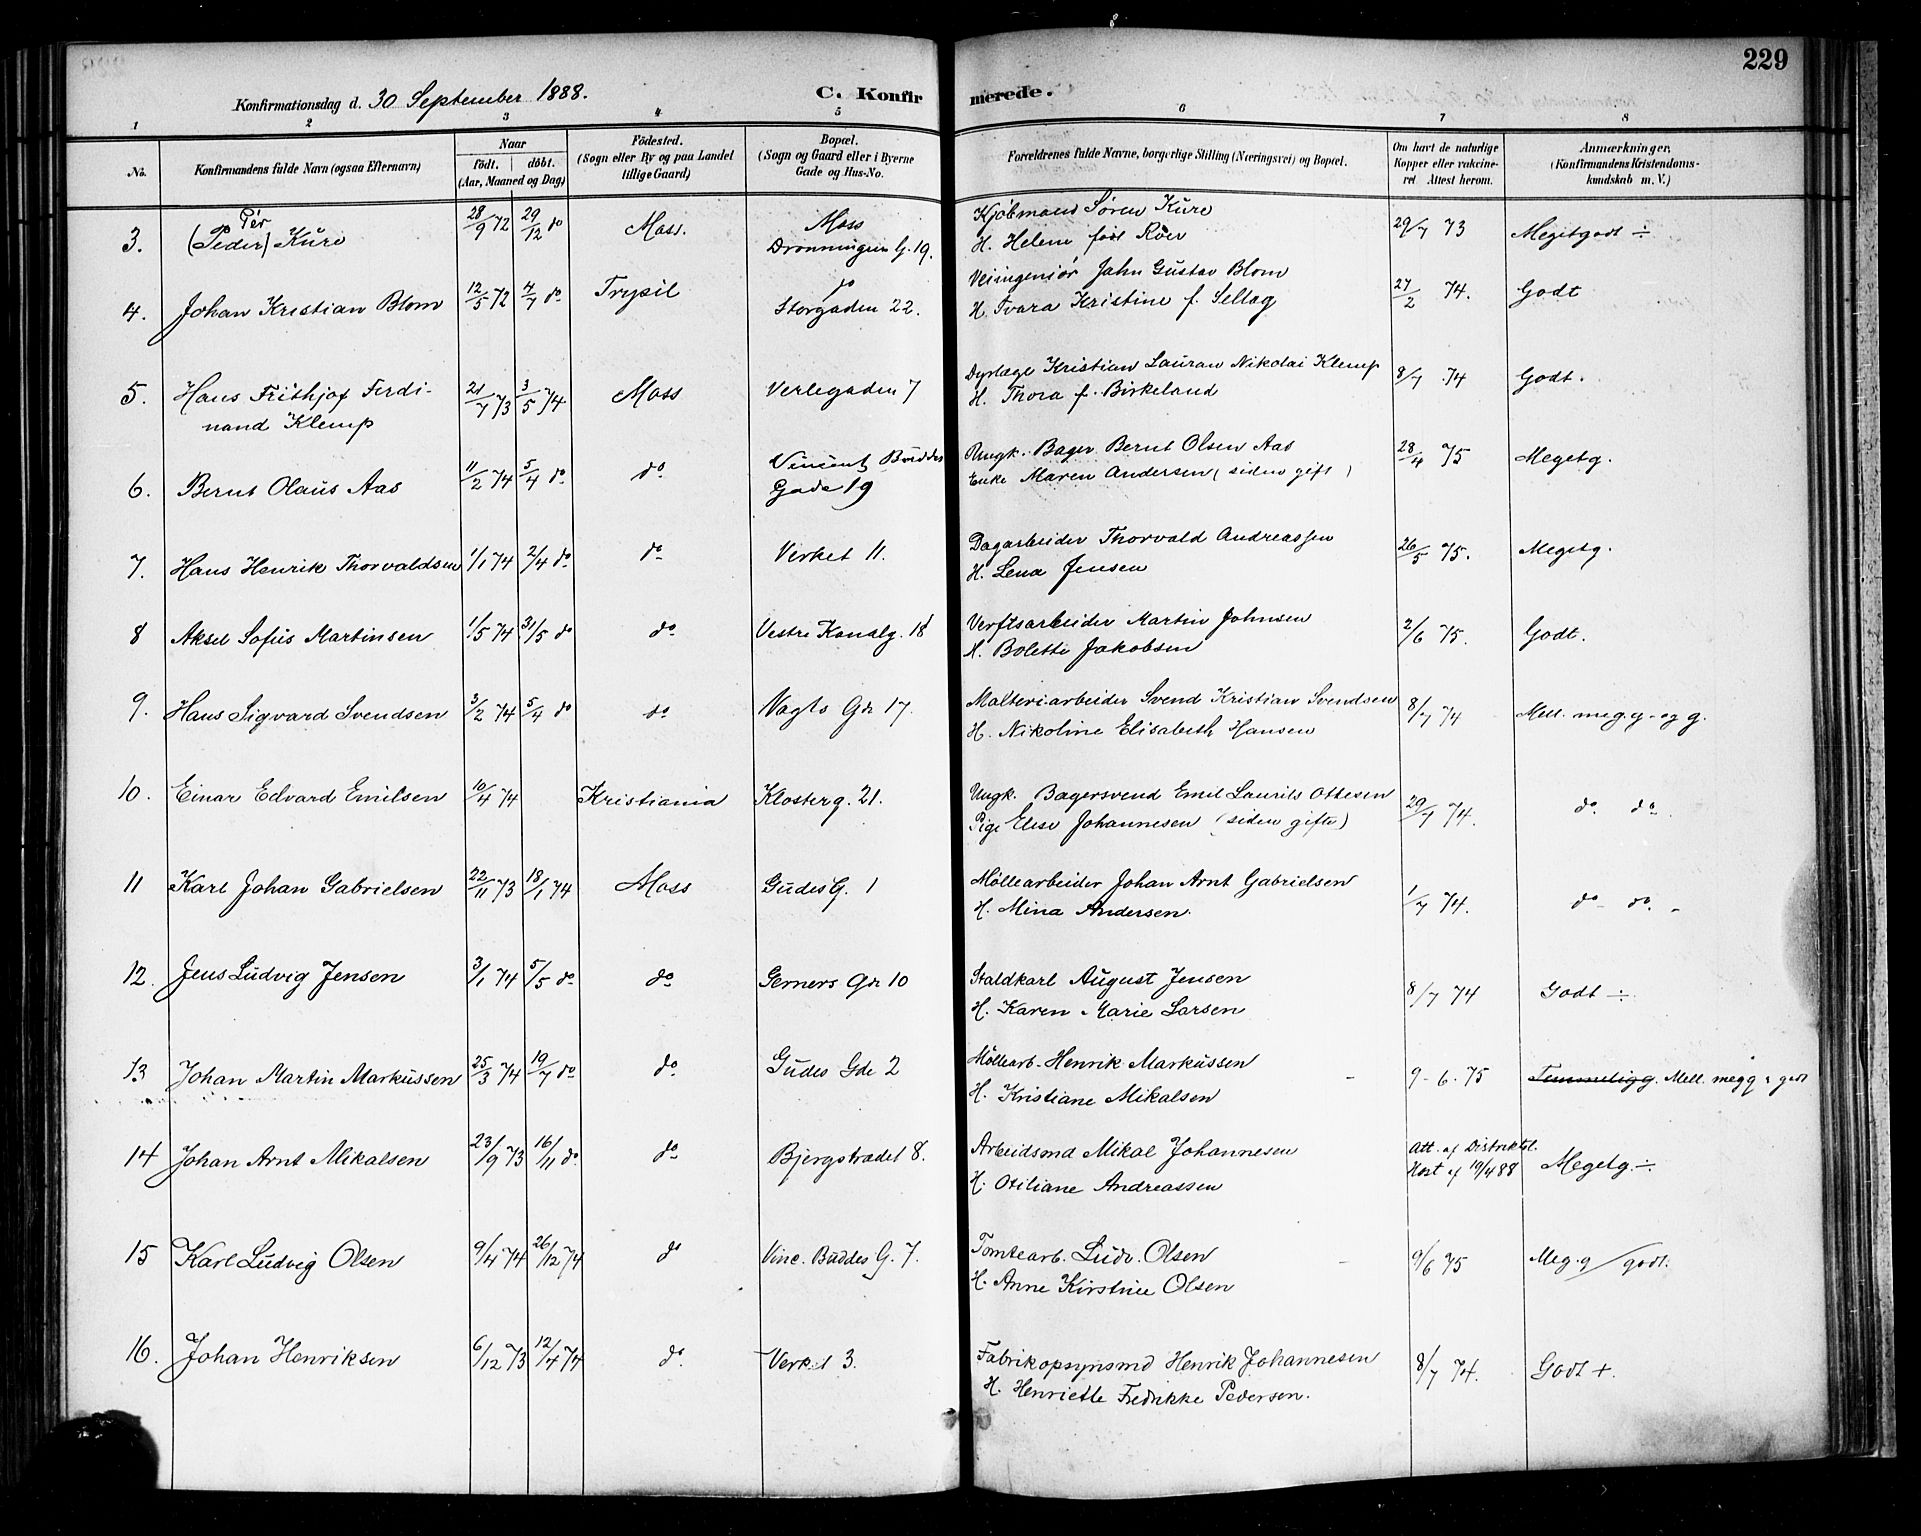 229
Konfirmationsdag d. 30 September 1888.
C. Konfirmerede.
1 2 3 4 5 6 7 8
No.
Konfirmandens fulde Navn (ogsaa Efternavn)
Naar
födt. döbt.
(Aar, Maaned og Dag)
Födested.
(Sogn eller By og paa Landet
tillige Gaard)
Bopæl.
(Sogn og Gaard eller i Byerne
Gade og Hus-No.
Forældrenes fulde Navne, borgerlige Stilling (Næringsvei) og Bopæl.
Om havt de naturlige
Kopper eller vakcine-
ret Attest herom.
Anmærkninger,
(Konfirmandens Kristendoms-
kundskab m. V.)
3. Pér (Peder) Kure 28/9 72 29/12 do Moss. Moss Dronningen G. 19. Kjöbmand Søren Kure H. Helene født Röer 29/7 73 Megetgodt ÷
4. Johan Kristian Blom 12/5 72 7/7 do Trysil do Storgaden 22. Veiingeniør Jahn Gustav Blom H. Tvara Kristine f. 27/2 74. Godt
5. Hans Frithjof Ferdi-
nand Klemp 21/7 73 3/5 74 Moss Verlegaden 7 Dyrlæge Kristian Lauran Nikolai Klemp H. Thora f. Birkeland 8/7 74 Godt.
6. Bernt Olaus Aas 11/2 74 5/4 do do Vincent Buddes Gade 19 Ungk. Bager Bernt Olsen Aas Enke Maren Andersen (siden gift) 28/4 75 Megetg.
7. Hans Henrik Thorvaldsen 1/1 74 2/4 do do Verket 11. Dagarbeider Thorvald Andreassen H. Lena Jensen 26/5 75. Megetg.
8 Aksel Sofus Martinsen 1/5 74 31/5 do do Vestre Kanalg. 18 Verftsarbeider Martin Johnsen H. Bolette Jakobsen 2/6 75. Godt.
9. Hans Sigvard Svendsen 3/2 74 5/4 do do Vogts Gd 17. Malteriarbeider Svend Kristian Svendsen H. Nikoline Elisabeth Hansen 8/7 74 Mell. meg.g. og g.
10. Einar Edvard Emilsen 10/4 74 Kristiania Klosterg. 21. Ungk. Bagersvend Emil Laurits Ottesen Pige Elise Johannesen (siden gifte) 29/7 74. do do
11 Karl Johan Gabrielsen 22/11 73 18/1 74 Moss Gudes G. 1 Möllearbeider Johan Arnt Gabrielsen H. Mina Andersen. 1/7 74. do do
12. Jens Ludvig Jensen 3/1 74 5/5 do do Gerners Gd 10 Staldkarl August Jensen H. Karen Marie Larsen 8/7 74 Godt ÷
13 Johan Martin Markussen 25/3 74 19/7 do do Gudes Gde 2 Möllearb. Henrik Markussen H. Kristiane Mikalsen 9-6-75 Temmelig g. Mell. megg & godt
14 Johan Arnt Mikalsen 23/9 73 16/11 do do Bjergstrædet 8. Arbeidsmd Mikal Johannesen H. Otiliane Andreassen Att. af Distriktsl. Høst af 19/4 88 Megetg. ÷
15 Karl Ludvig Olsen 9/4 74 26/12 74 do Vinc. Buddes G. 7. Tomtearb. Ludv. Olsen H. Anne Kirstine Olsen 9/6 75 Meg.g / godt.
16. Johan Henriksen 6/12 73 12/4 74 do Verket 3. Fabrikopsynsmd Henrik Johannesen H. Henriette Fredrikke Pedersen. 8/7 74. Godt +.